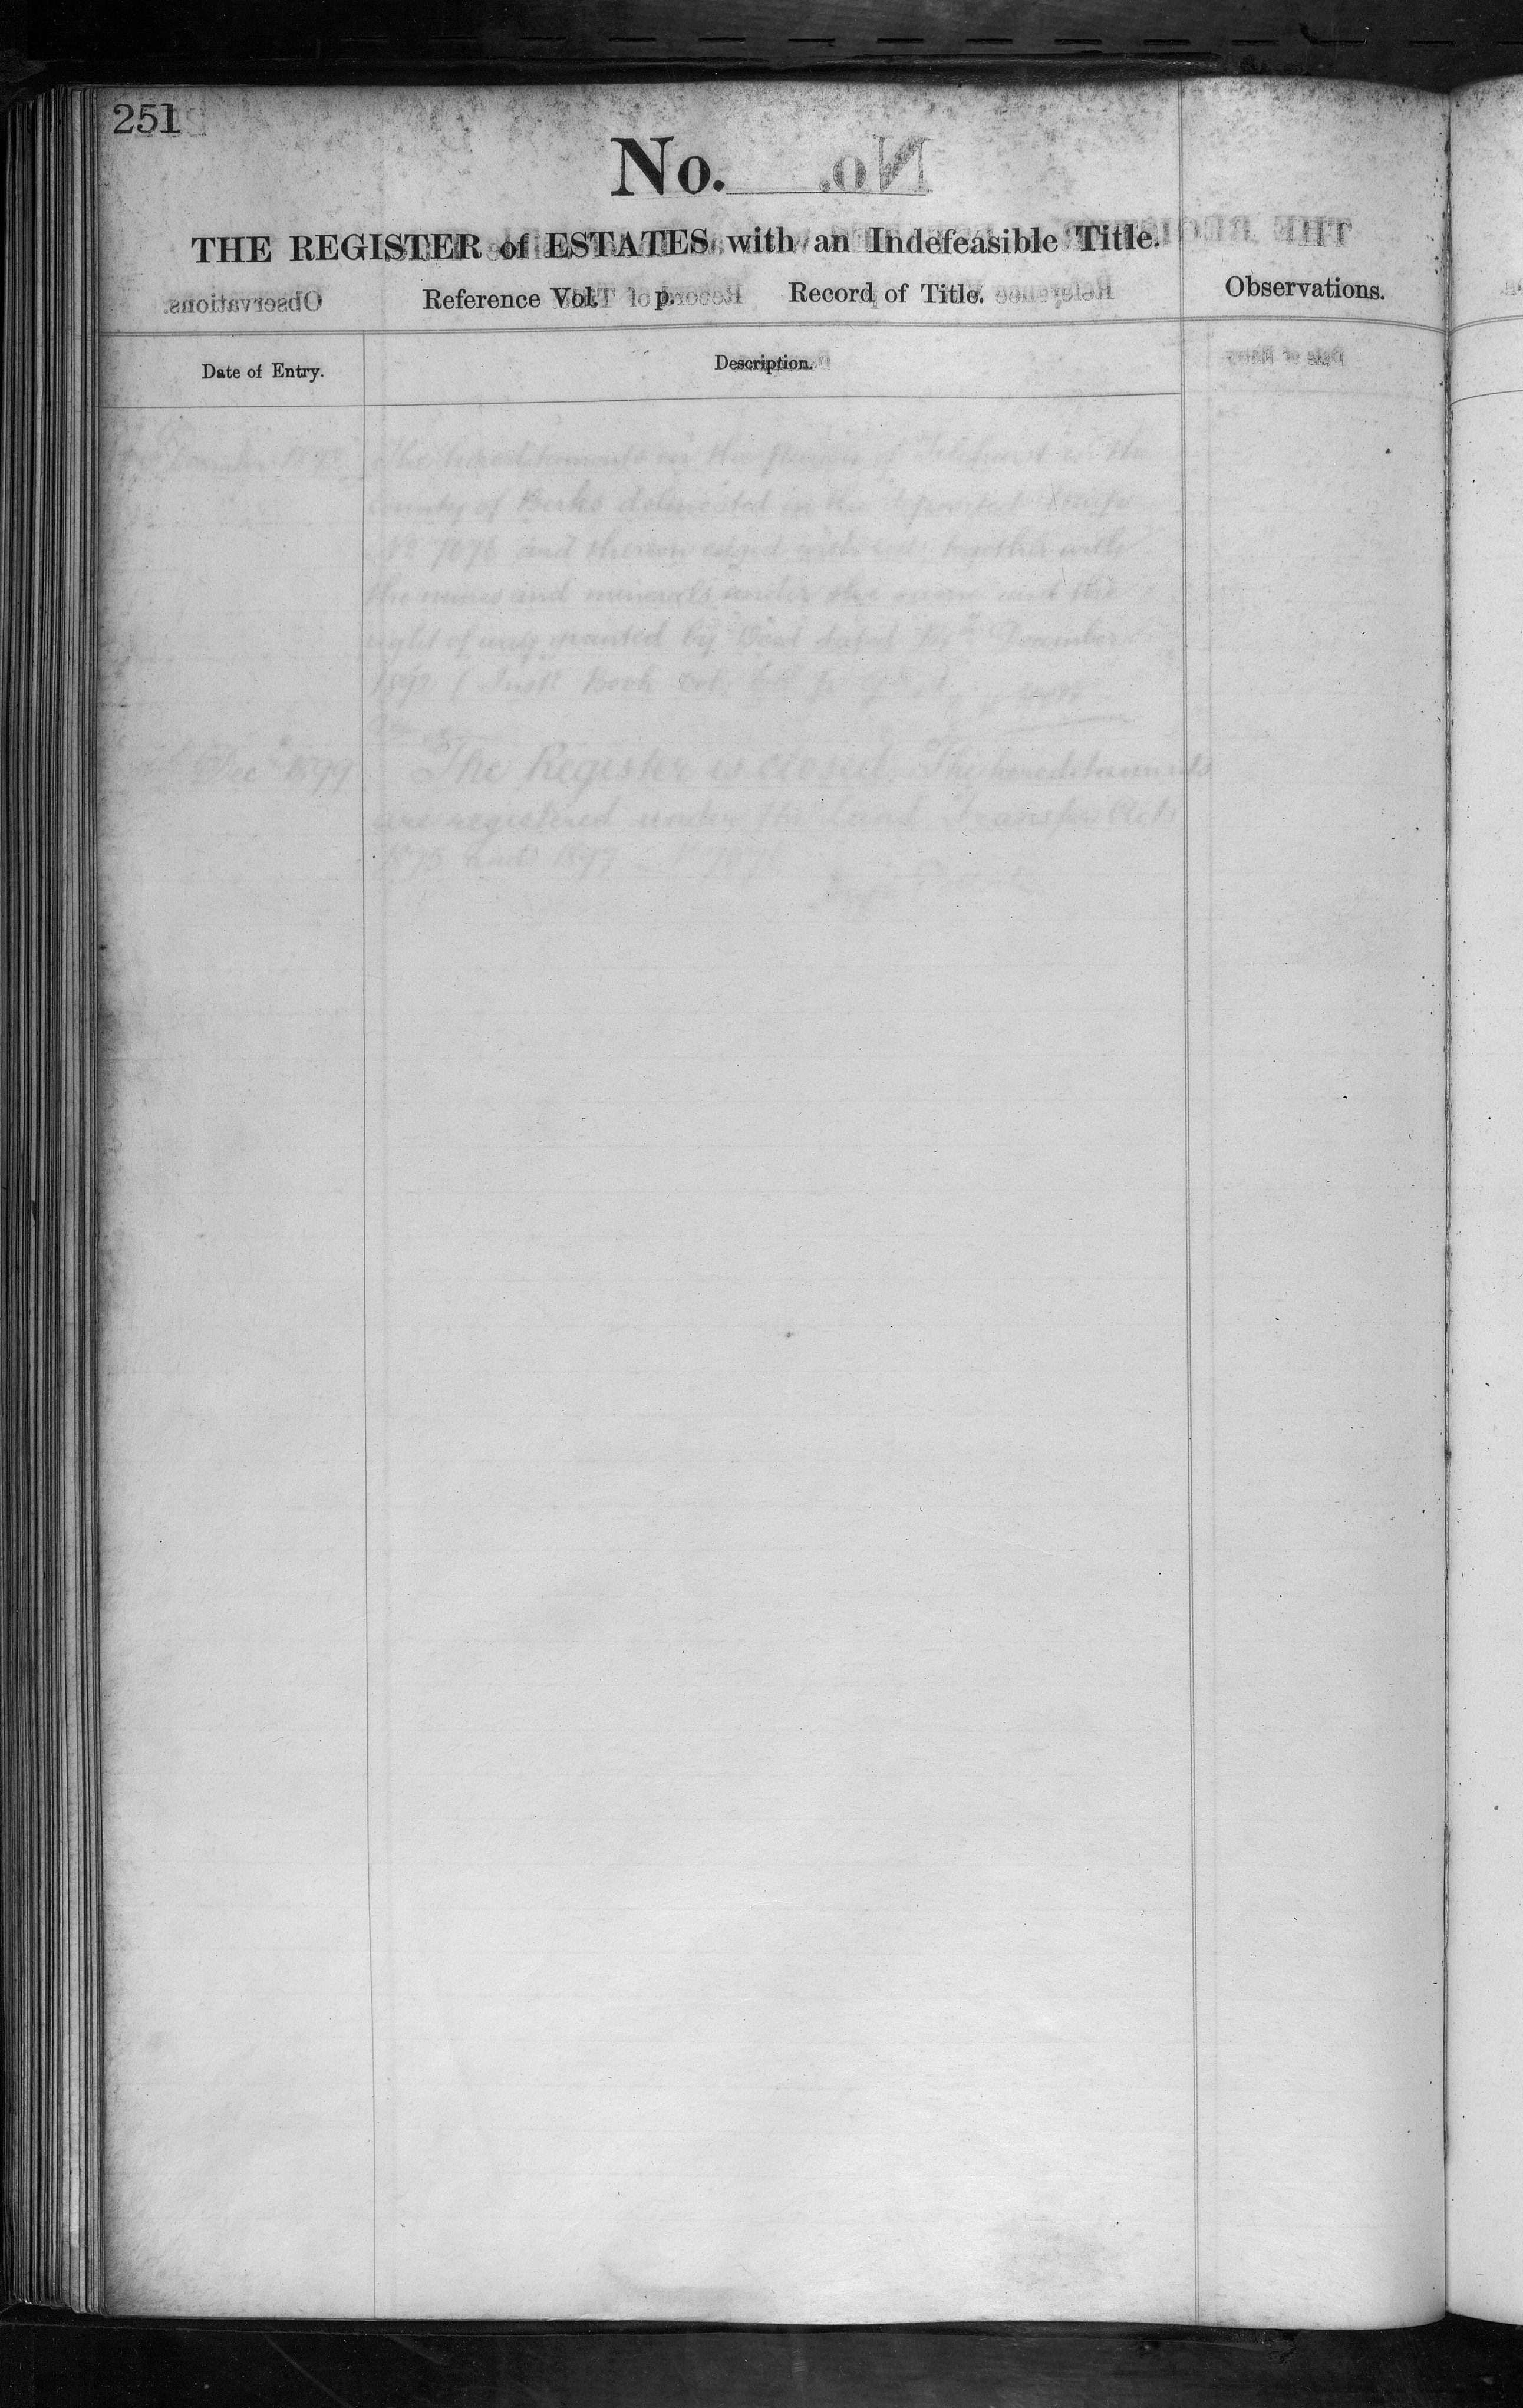 251
No.
THE REGISTER of ESTATES with an Indefeasible Title.
Reference Vol. p. Record of Title. Observations.
Date of Entry. Description.
December 189 The hereditaments in the Parish of Tilehurst in the
County of Berks delineated in the deposited
No 7076 and thereon edged with red together with
the mines and minerals under the same and the
right of way granted by Deed dated December
1892 (Inst. Book Vol. p.
Dec 1899 The Register is closed. The hereditaments
are registered under the Land Transfer Acts
1875 and 1897